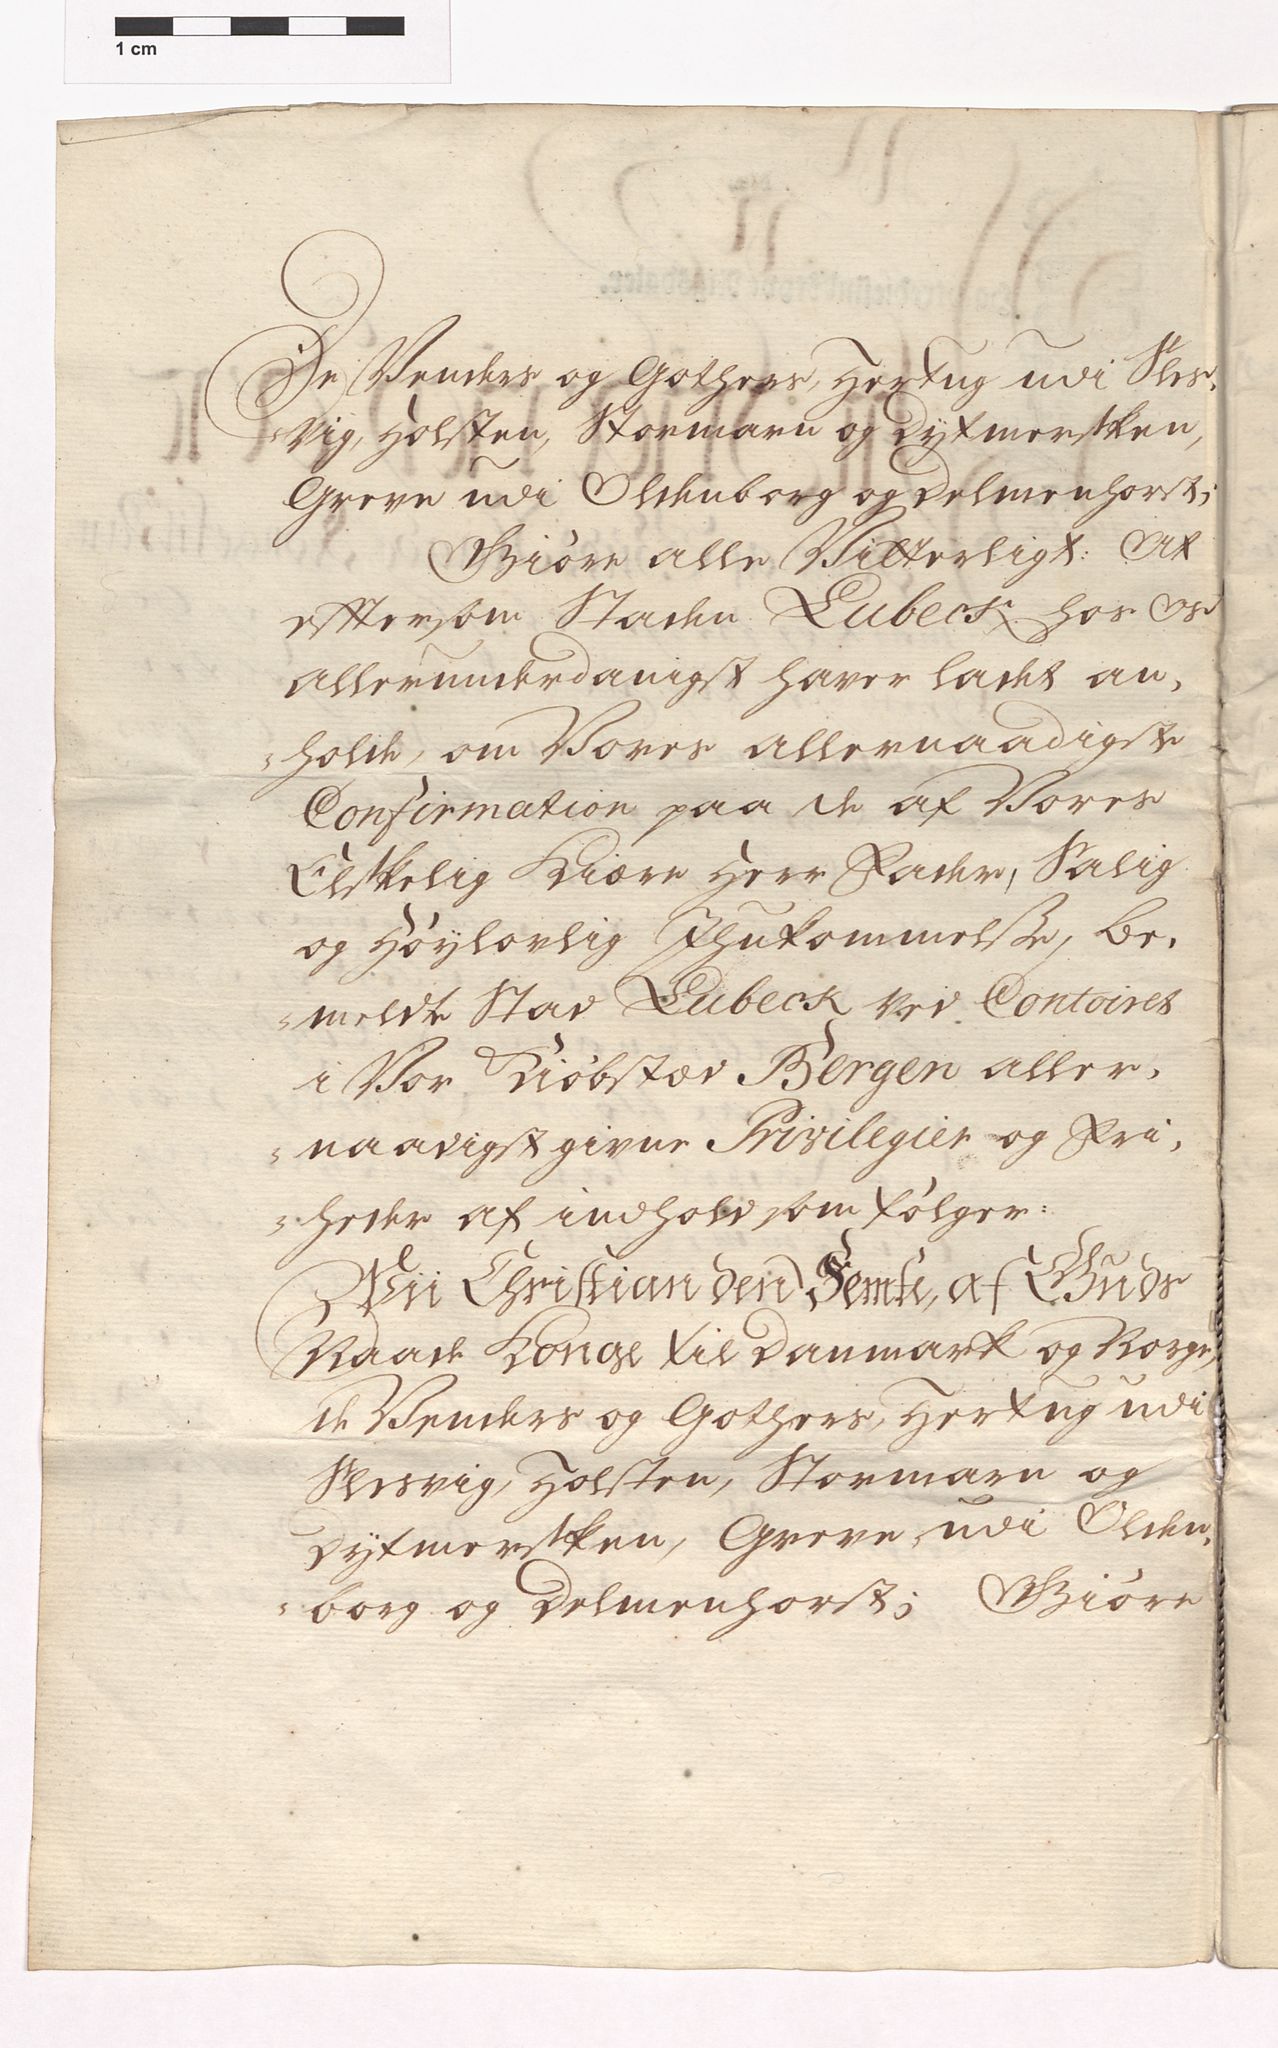 1 cm
De Venders og Gothers, Hertug udi Sles-
-vig, Holsten, Stormarn og Dytmersken,
Greve udi Oldenborg og Delmenhorst;
Giöre alle Vitterligt: At
eftersom Staden Lubeck hos Os
allerunderdanigst haver ladet an-
-holde, om Vores allernaadigste
Confirmation paa de af Vores
Elskelig Kiære Herr Fader, Salig
og Höylovlig Ihukommelse, be-
-meldte Stad Lubeck ved Contoiret
i Vor Kiöbstæd Bergen aller-
-naadigst givne Privilegier og Fri-
-heder af indhold som fölger:
Vii Christian den Femte, af Guds
Naade Konge til Danmark og Norge,
de Venders og Gothers, Hertug udi
Slesvig, Holsten, Stormarn og
Dytmersken, Greve udi Olden-
-borg og Delmenhorst; Giöre